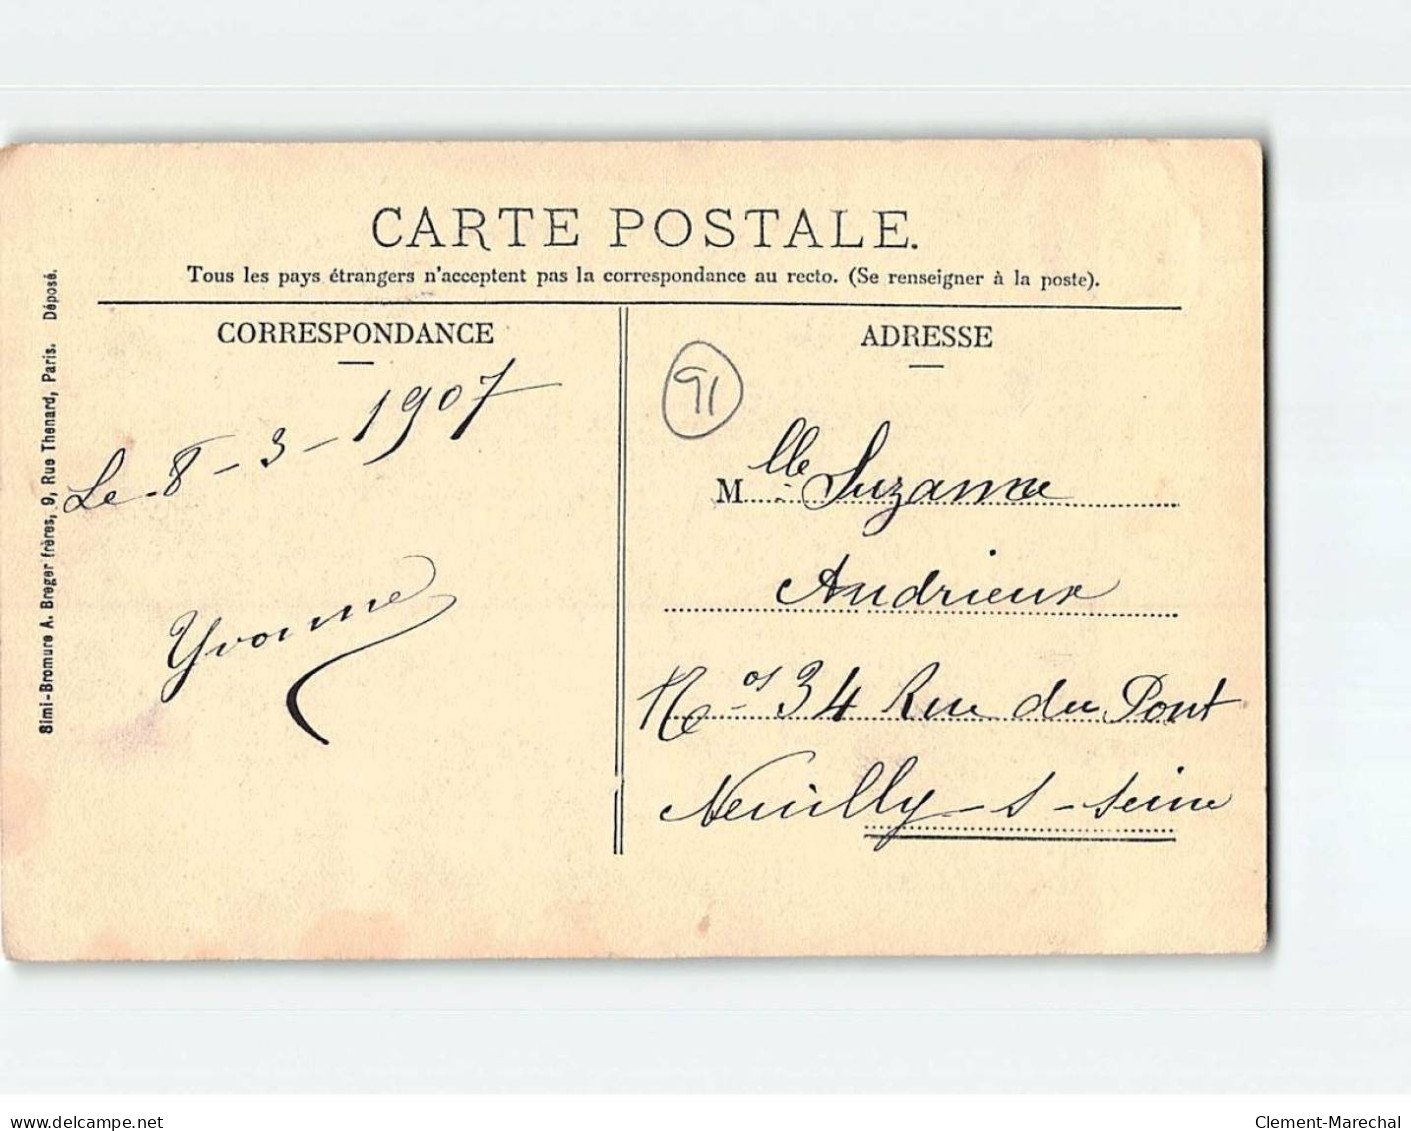 CARTE POSTALE.
Tous les pays étrangers n'acceptent pas la correspondance au recto. (Se renseigner à la poste).
CORRESPONDANCE
Le 8-3-1907
Yvonne
ADRESSE
91
Mlle Suzanne
Andrieux
Nos 34 Rue du Pont
Neuilly-s-Seine
Simi-Bromure A. Breger frères, 9, Rue Thenard, Paris. Déposé.
www.delcampe.net
Clement-Marechal